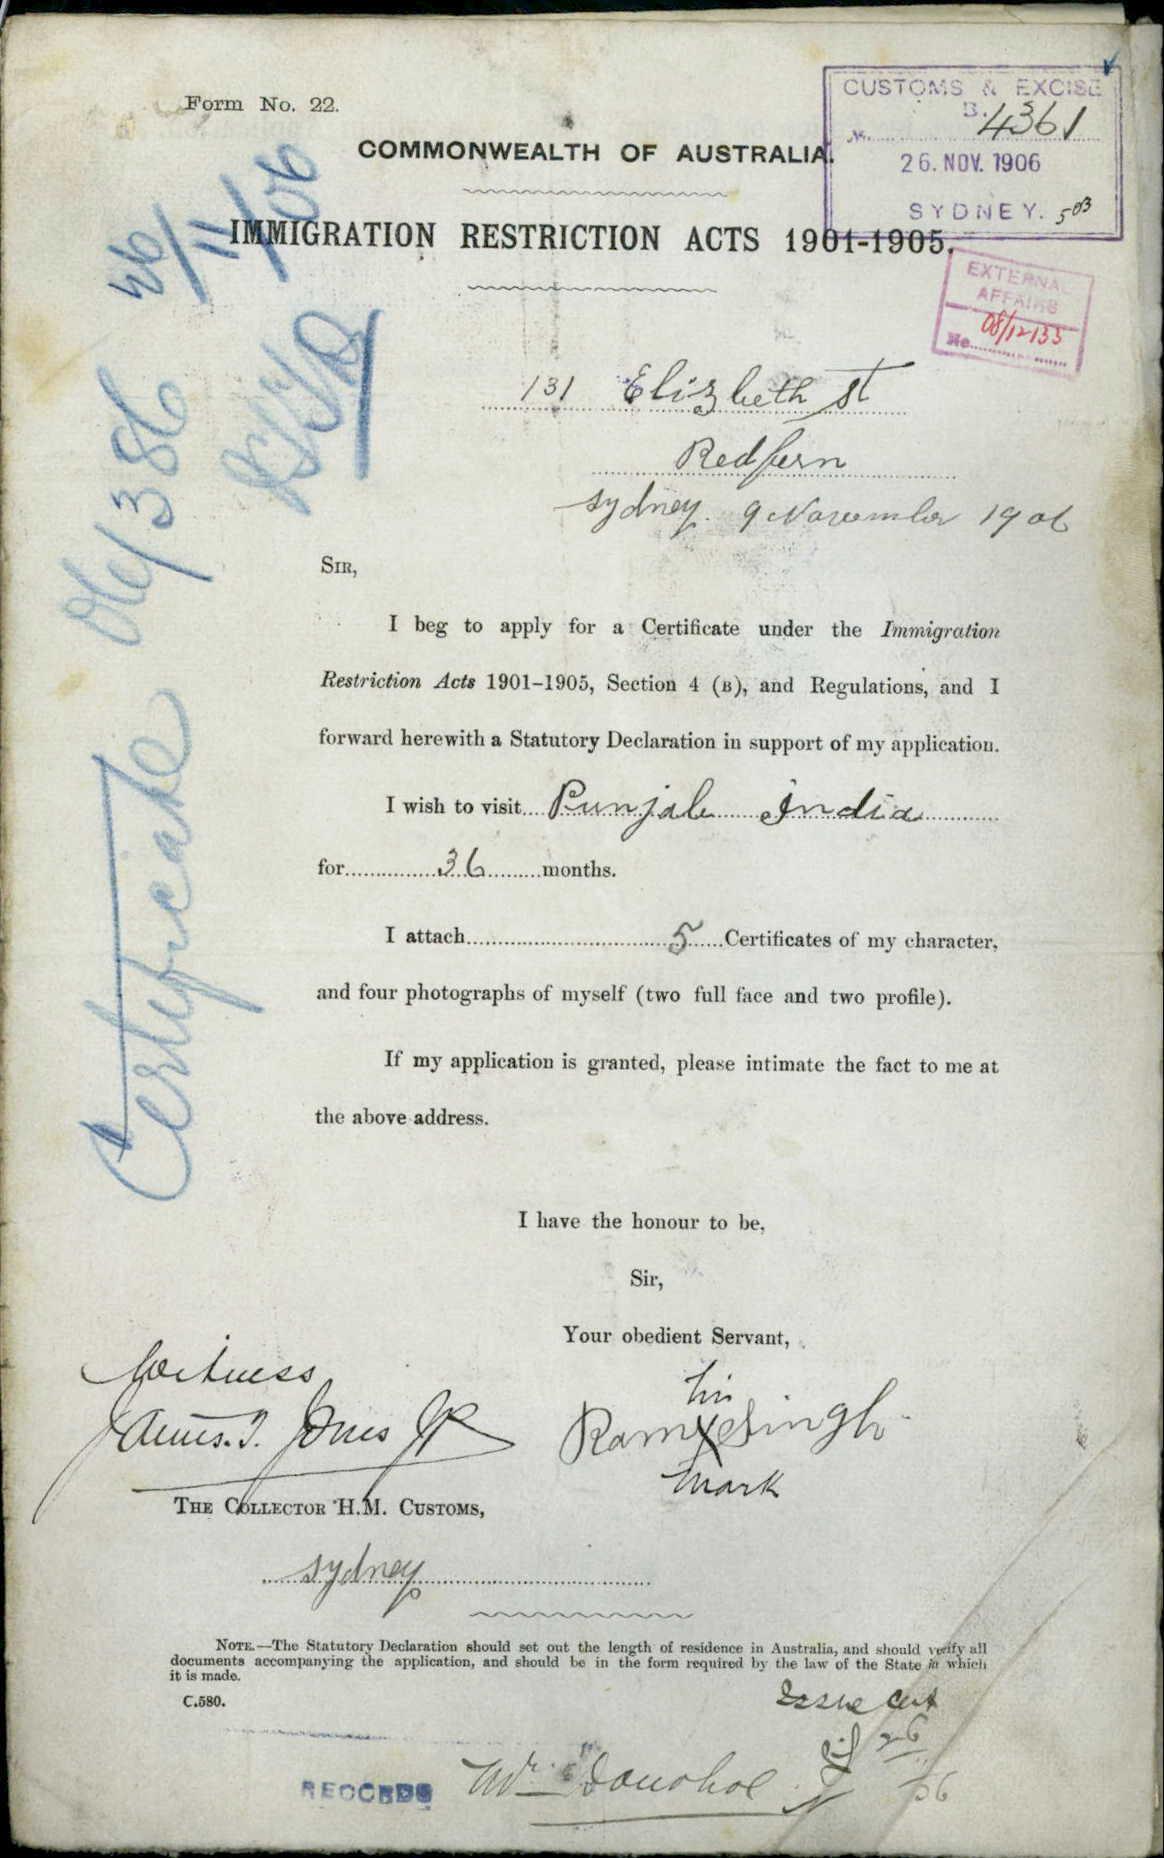 Form No. 22.
CUSTOMS & EXCISE
B.
No. 4361
26. NOV. 1906
SYDNEY. 503
COMMONWEALTH OF AUSTRALIA.
26/11/06
IMMIGRATION RESTRICTION ACTS 1901-1905.
EXTERNAL
AFFAIRS
No. 08/12135
131 Elizbeth St
Redfern
Sydney. 9 November 1906
Certificate 06/386
SIR,
I beg to apply for a Certificate under the Immigration
Restriction Acts 1901-1905, Section 4 (B), and Regulations, and I
forward herewith a Statutory Declaration in support of my application.
I wish to visit Punjab India
for 36 months.
I attach 5 Certificates of my character,
and four photographs of myself (two full face and two profile).
If my application is granted, please intimate the fact to me at
the above address.
I have the honour to be,
Sir,
Your obedient Servant,
Witness
his
James. T. Jones JP
Ram X Singh
mark
THE COLLECTOR H.M. CUSTOMS,
Sydney
NOTE.—The Statutory Declaration should set out the length of residence in Australia, and should verify all
documents accompanying the application, and should be in the form required by the law of the State in which
it is made.
C.580.
Issue Cert
26
RECORDS
Mr Donohoe
06